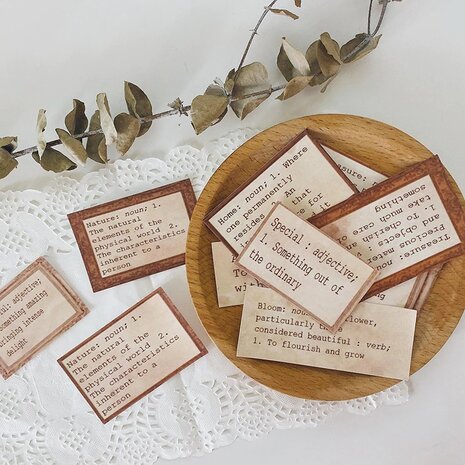 Nature: noun; 1.
The natural
elements of the
physical world 2.
The characteristics
inherent to a
person
adjective;
Something amazing
intense
delight
Nature: noun; 1.
The natural
elements of the
physical world 2.
The characteristics
inherent to a
person
Home: noun; 1.
Where
one permanently
resides
An
for
it
Special: adjective;
1. Something out of
the ordinary
Treasure: noun;
Precious metals
and objects 2.
To cherish
take much care
something
measure
to
with
Bloom: noun; flower,
particularly
considered beautiful : verb;
1. To flourish and grow